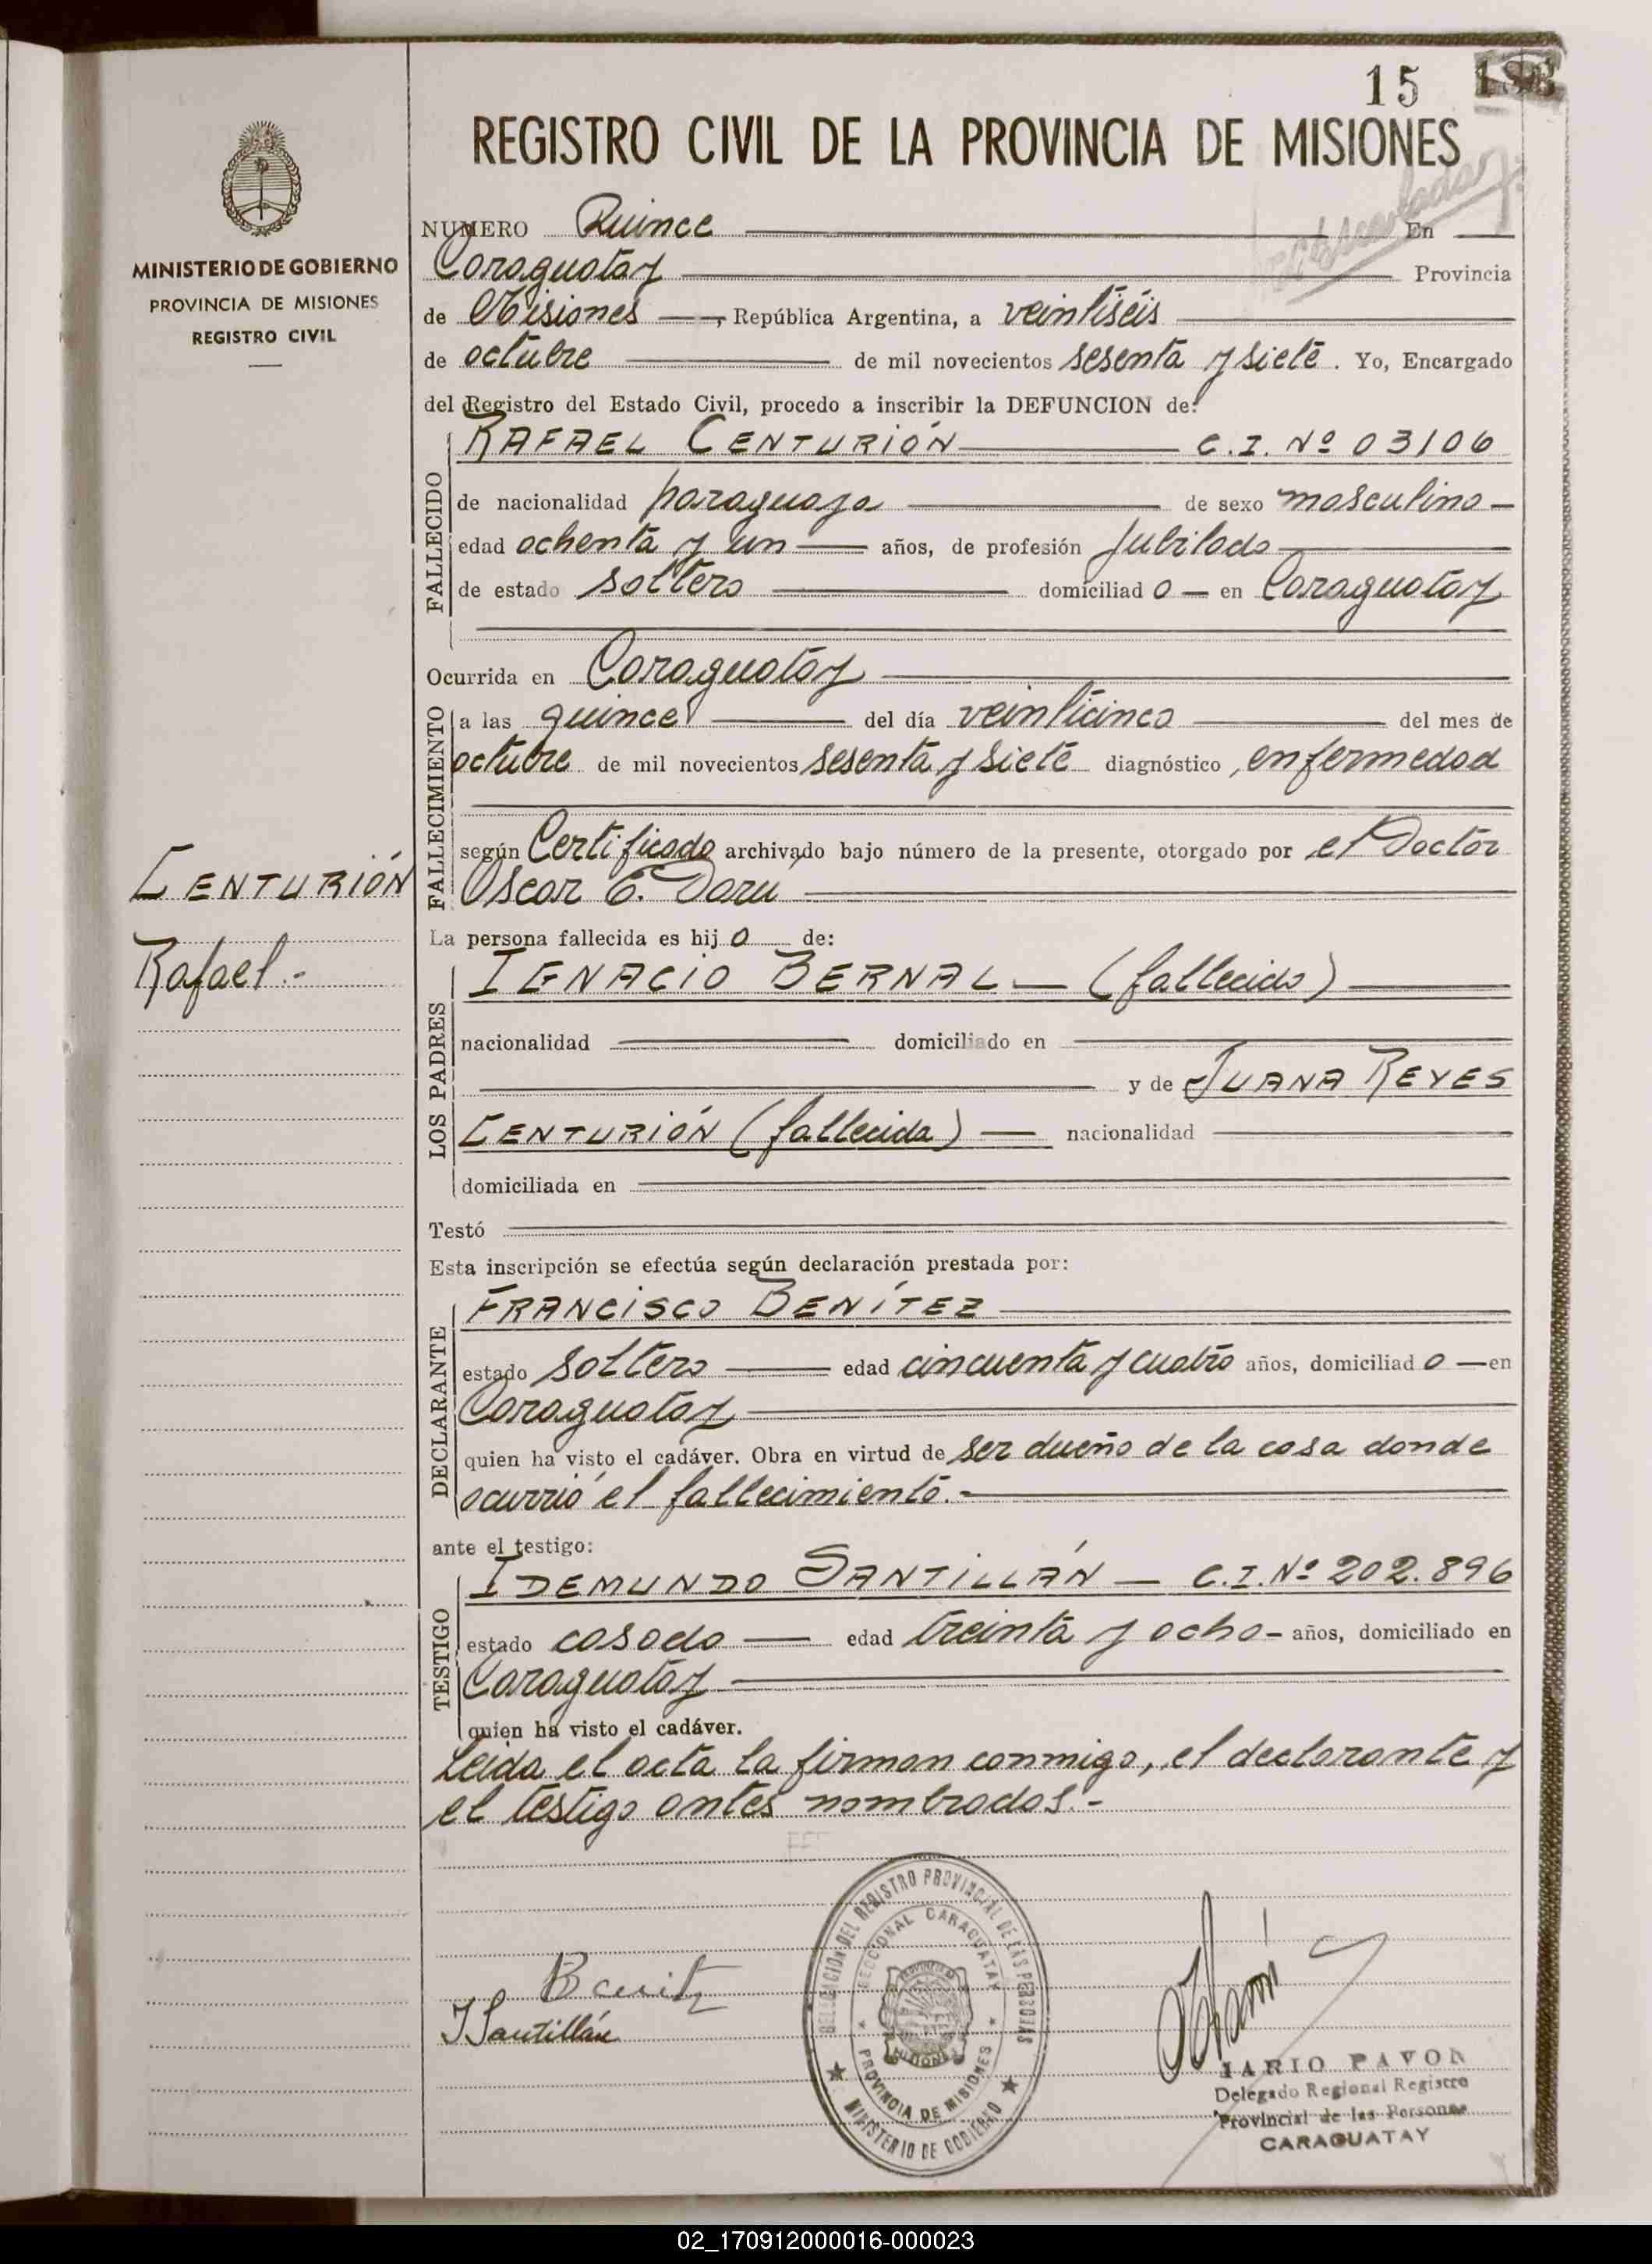 15
REGISTRO CIVIL DE LA PROVINCIA DE MISIONES
MINISTERIO DE GOBIERNO
PROVINCIA DE MISIONES
REGISTRO CIVIL
NUMERO Quince En
Caraguatay Provincia
de Misiones, República Argentina, a veintiséis
de octubre de mil novecientos sesenta y siete. Yo, Encargado
del Registro del Estado Civil, procedo a inscribir la DEFUNCION de:
FALLECIDO
RAFAEL CENTURIÓN C.I. Nº 03106
de nacionalidad paraguaya de sexo masculino
edad ochenta y un años, de profesión Jubilado
de estado soltero domiciliad o en Caraguatay
Ocurrida en Caraguatay
FALLECIMIENTO
a las quince del día veinticinco del mes de
octubre de mil novecientos sesenta y siete diagnóstico, enfermedad
según Certificado archivado bajo número de la presente, otorgado por el Doctor
Oscar E. Daru
CENTURIÓN
Rafael.-
La persona fallecida es hij o de:
LOS PADRES
IGNACIO BERNAL (fallecido)
nacionalidad domiciliado en
y de JUANA REYES
CENTURIÓN (fallecida) nacionalidad
domiciliada en
Testó
Esta inscripción se efectúa según declaración prestada por:
DECLARANTE
FRANCISCO BENÍTEZ
estado soltero edad cincuenta y cuatro años, domiciliad o en
Caraguatay
quien ha visto el cadáver. Obra en virtud de ser dueño de la casa donde
ocurrió el fallecimiento.-
ante el testigo:
TESTIGO
IDEMUNDO SANTILLÁN C.I. Nº 202.896
estado casado edad treinta y ocho años, domiciliado en
Caraguatay
quien ha visto el cadáver.
Leida el acta la firman conmigo, el declarante y
el testigo antes nombrados.-
DELEGACION DEL REGISTRO PROVINCIAL DE LAS PERSONAS
SECCIONAL CARAGUATAY
PROVINCIA DE MISIONES
MINISTERIO DE GOBIERNO
Benitz
I Santillán
DARIO PAVON
Delegado Regional Registro
Provincial de las Personas
CARAGUATAY
02_170912000016-000023